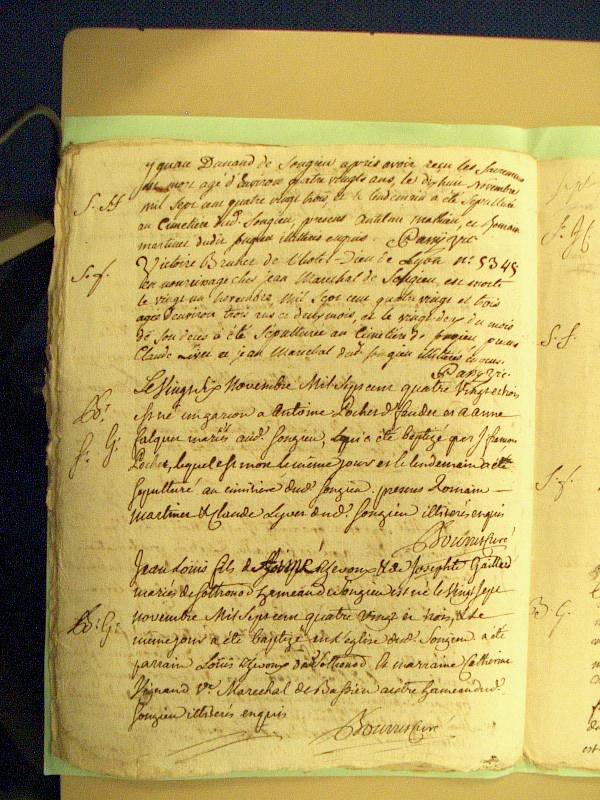 Dunand de Songieu apres avoir recu les Sacremens
est mort agé d'Environ quatre vingts ans, le dixhuit Novembre
S. H. mil Sept cent quatre vingt trois, et le lendemain a été Sepulturé
au Cimetière dud. Songieu, presens Antelme mathieu, et Romain
martinet dudit Songieu illiterés enquis.
S. f. Victoire de l'hotel-Dieu de Lyon n.° 5345
en nourrissage chez jean Marechal de Songieu, est morte
le vingt un Novembre mil Sept cent quatre vingt et trois
agée d'environ trois ans et mois, et le vingt deux du mois
de Son deces a été Sepulturée au Cimetière de Songieu presens
Claude et jean Marechal dud. Songieu illiterés enquis.
Le Vingt Six Novembre Mil Sept cent quatre Vingt et trois
B. est né un garcon a Antoine de et a anne
falquet mariés aud. Songieu, Lequel a été Baptizé par
S. G. lequel est mort le même jour et le lendemain a été
Sepulturé au cimitiere dud. Songieu. presens Romain
Martinet & Claude dud. Songieu illiterés enquis
Bourrin Curé
Jean Louis fils de & de Josephte Gaillard
mariés de Sottonod hameau de Songieu est né le Vingt Sept
novembre Mil Sept cent quatre Vingt et trois, & le
B. G. même jour a été baptizé en l'eglise dud. Songieu a été
parrain Louis dud. Sottonod la marraine Catherine
V.e Marechal de Bassieu autre hameau dud.
Songieu illiterés enquis
Bourrin Curé
S. H.
S. f.
S. f.
B. G.